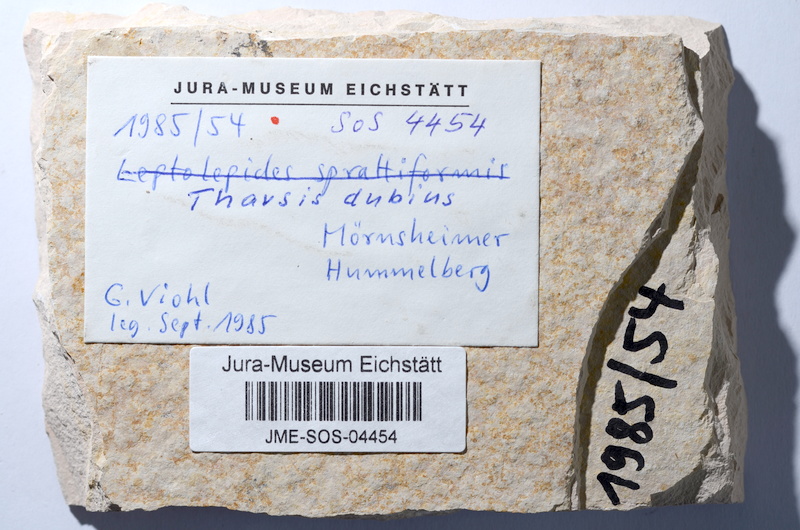 JURA-MUSEUM EICHSTÄTT
1985/54 • SOS 4454
Leptolepides sprattiformis
Tharsis dubius
Mörnsheimer
Hummelberg
G. Viohl
leg. Sept. 1985
Jura-Museum Eichstätt
JME-SOS-04454
1985/54